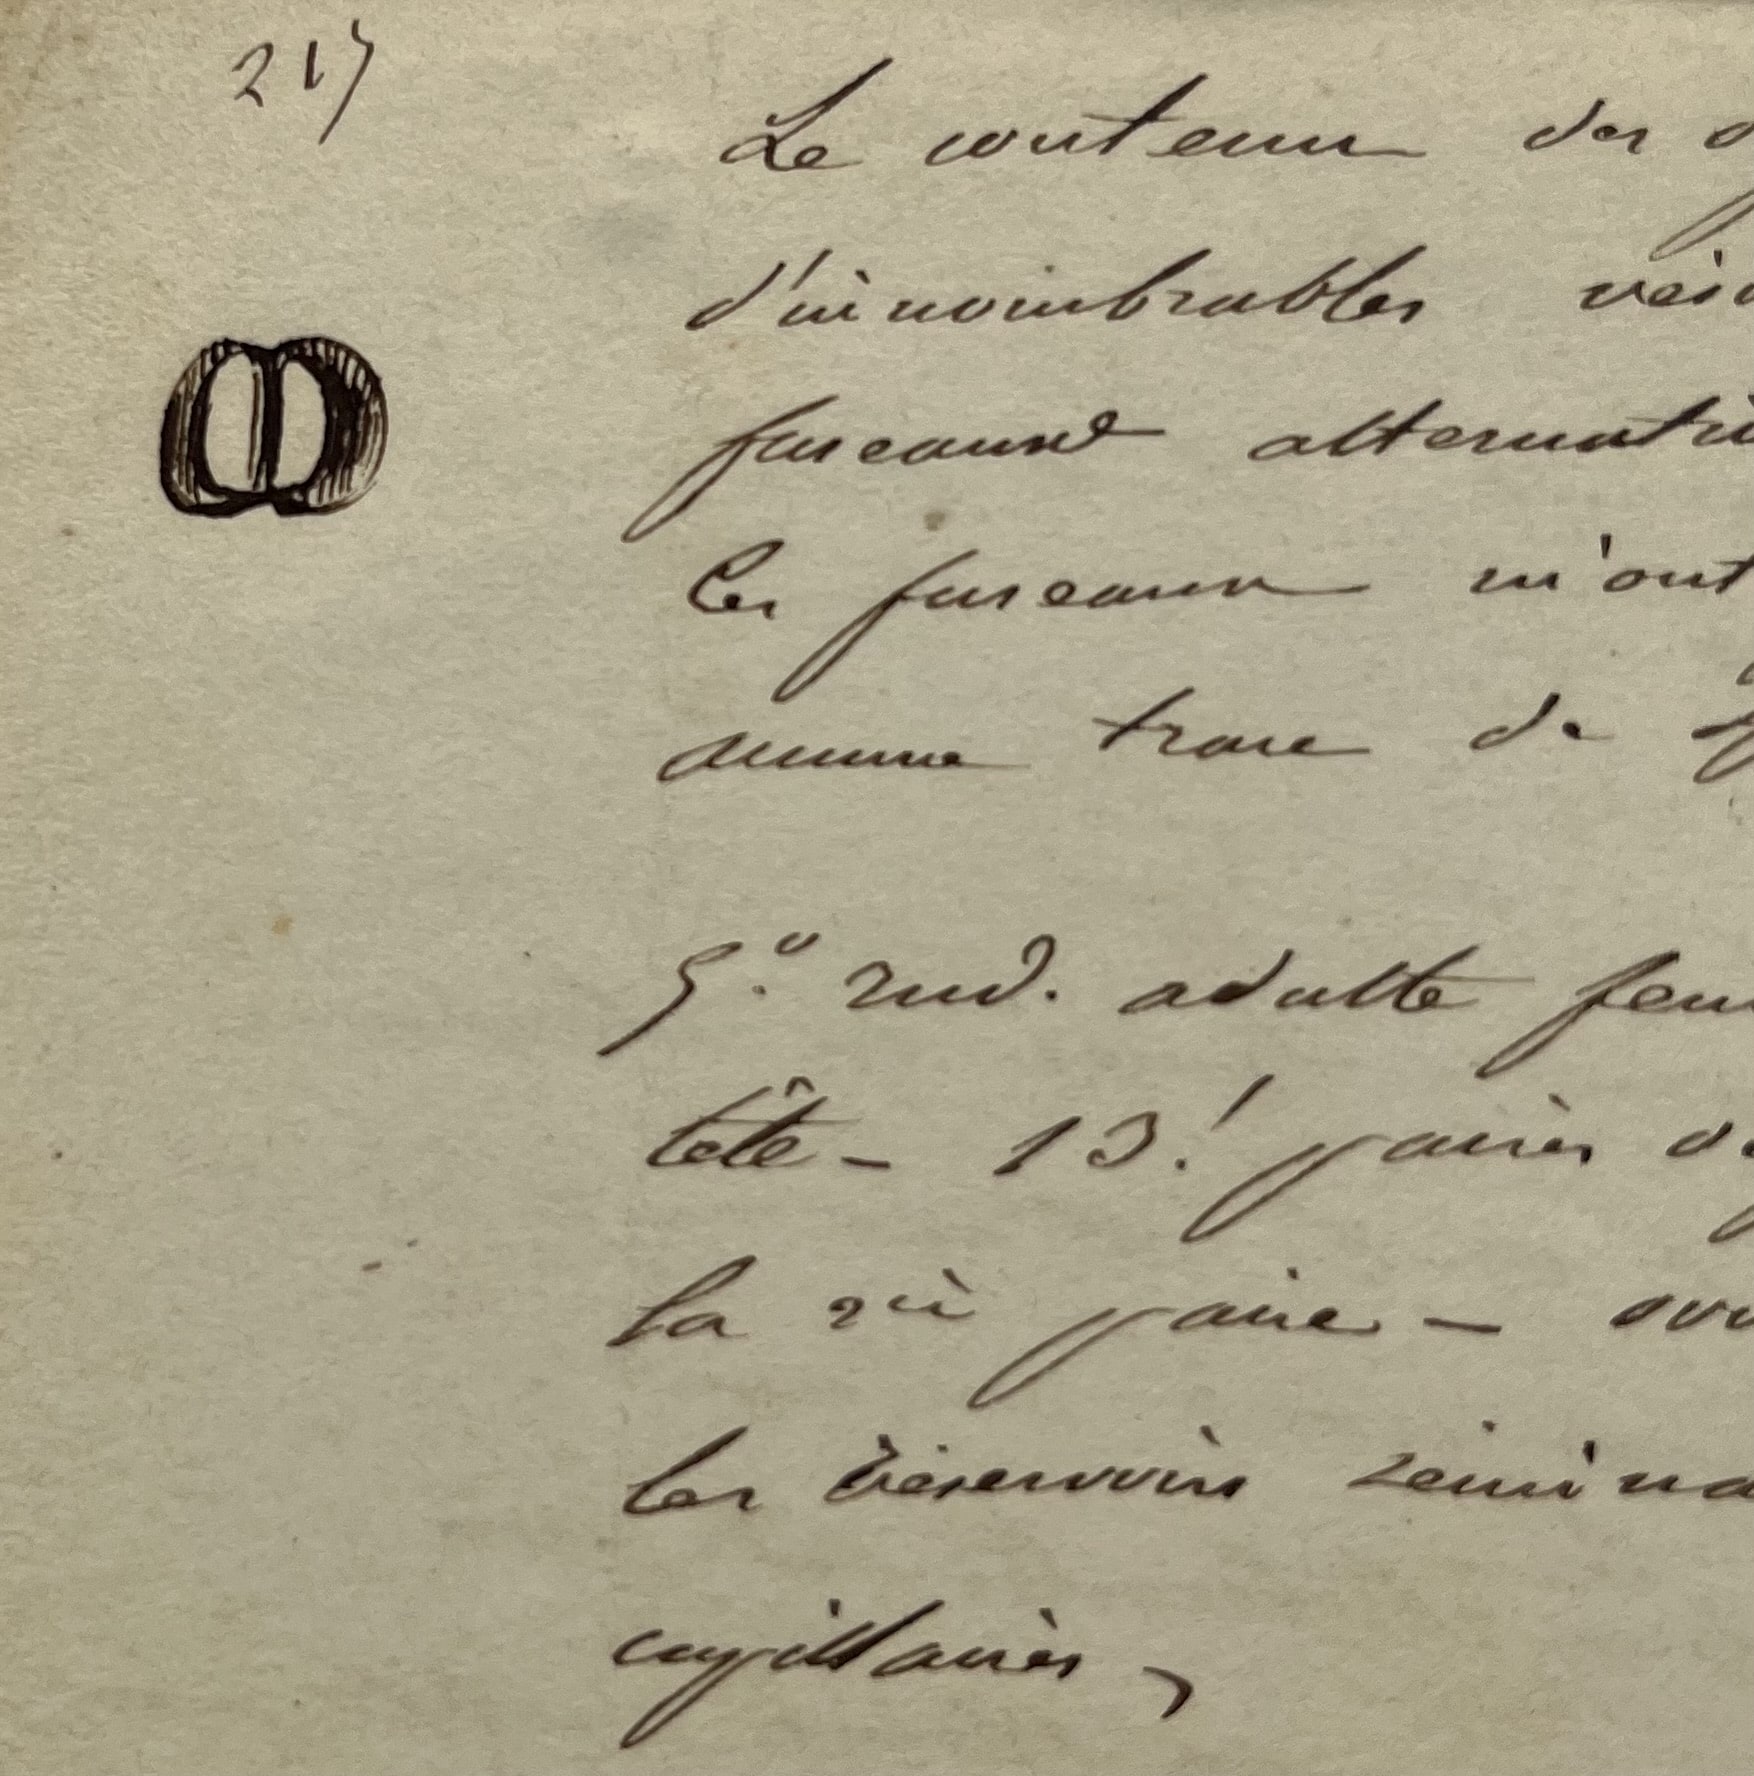 217
Le contenu des
d'innombrables
fuseaux
les fuseaux m'ont
aucune trace de
5.° ind. adulte
tête - 13! paires
la paire -
les réservoirs
capillaires,